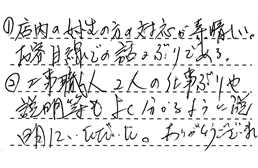 ①店内の女性の方の対応が素晴しい。
お客目線での話しぶりである。
②工事職人2人の仕事ぶりや
説明等もよく分かるように説
明していただいた。ありがとうございました